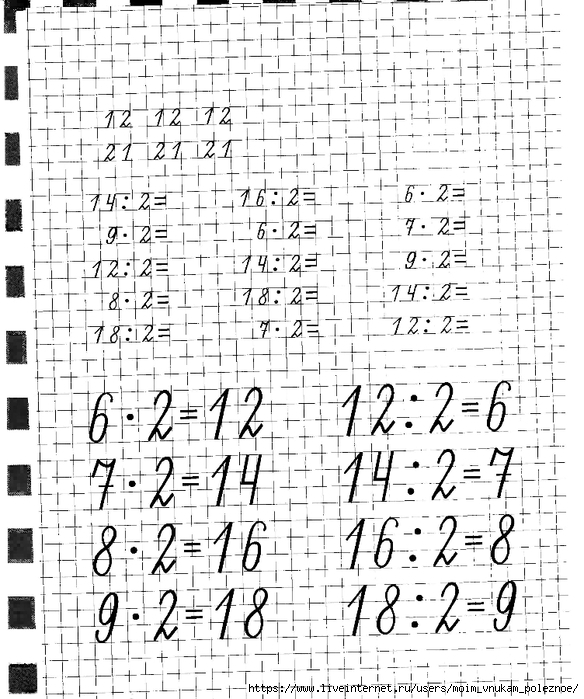 12 12 12
21 21 21
14:2= 16:2= 6·2=
9·2= 6·2= 7·2=
12:2= 14:2= 9·2=
8·2= 18:2= 14:2=
18:2= 7·2= 12:2=
6·2=12 12:2=6
7·2=14 14:2=7
8·2=16 16:2=8
9·2=18 18:2=9
https://www.liveinternet.ru/users/moim_vnukam_poleznoe/